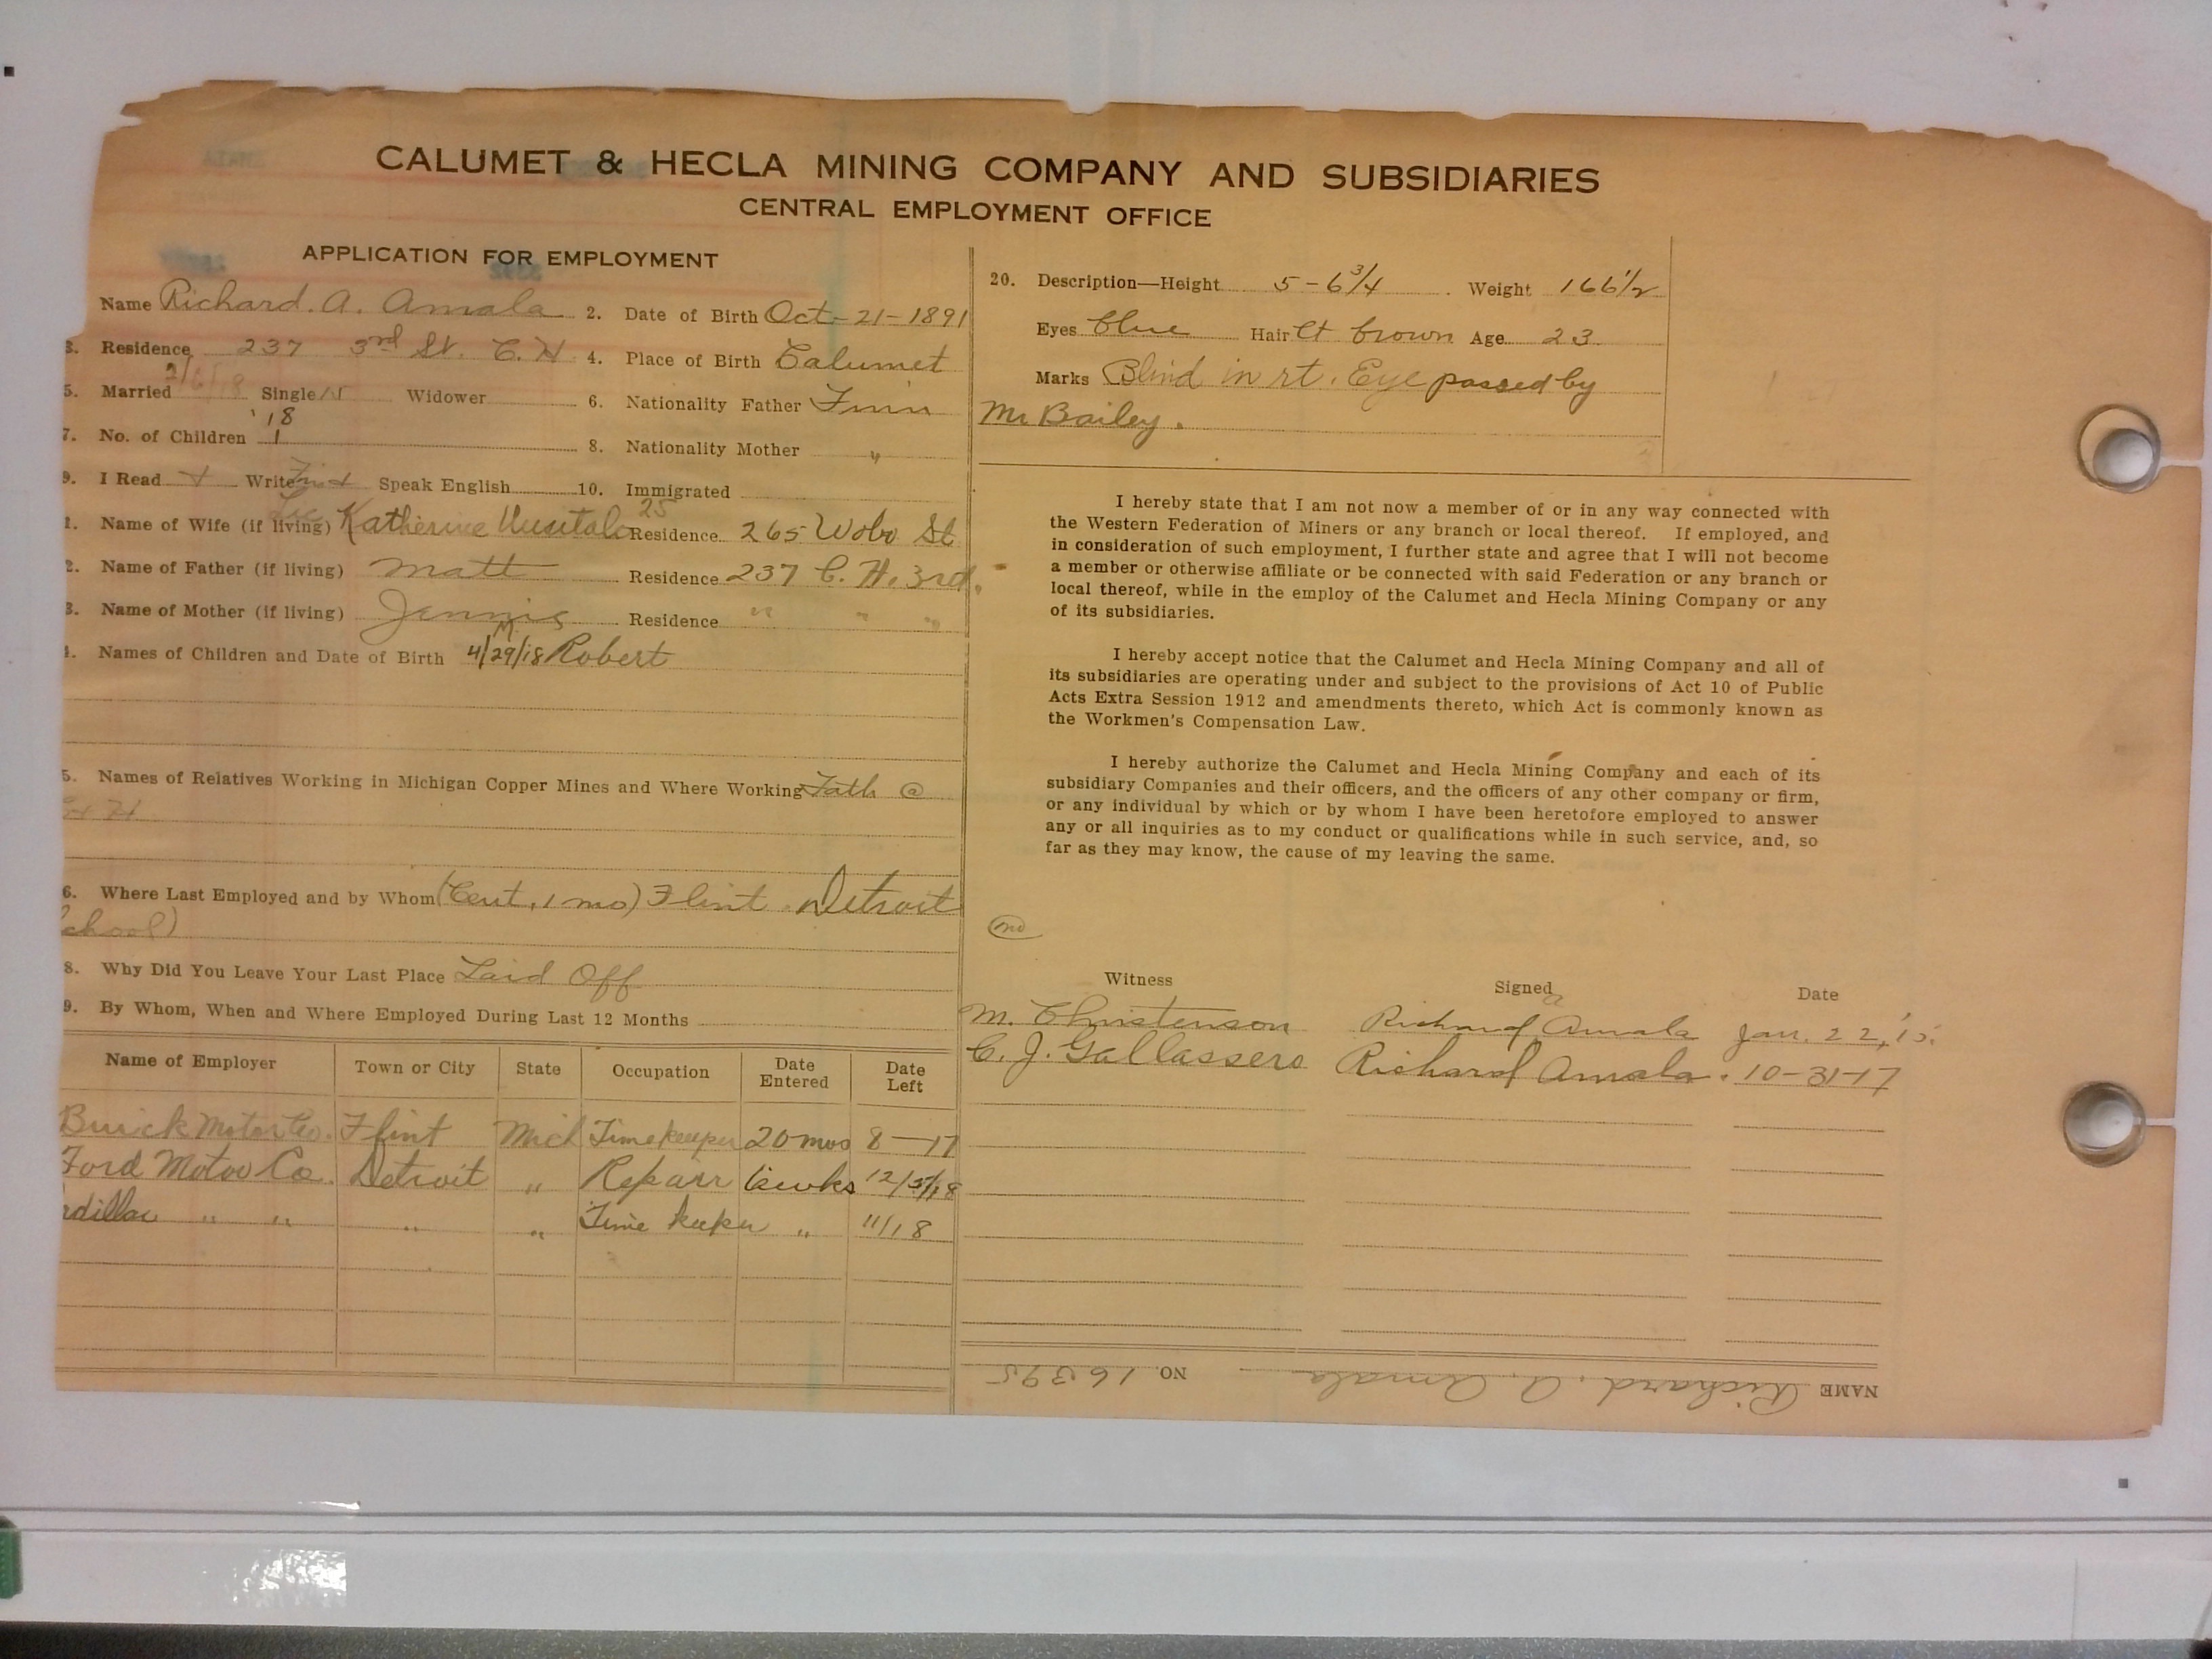 CALUMET & HECLA MINING COMPANY AND SUBSIDIARIES
CENTRAL EMPLOYMENT OFFICE
APPLICATION FOR EMPLOYMENT
Name Richard. A. Amala 2. Date of Birth Oct-21-1891
3. Residence 237 3rd St. C. H 4. Place of Birth Calumet
2/6/18
5. Married Single Widower 6. Nationality Father Finn
'18
7. No. of Children 1 8. Nationality Mother "
9. I Read Write Speak English 10. Immigrated
25
1. Name of Wife (if living) Katherine Uusitalo Residence 265 Wobo St
2. Name of Father (if living) Matt Residence 237 C. H. 3rd.
3. Name of Mother (if living) Jennie Residence " " "
4. Names of Children and Date of Birth 4/29/18 Robert
5. Names of Relatives Working in Michigan Copper Mines and Where Working Fath @
6. Where Last Employed and by Whom (Cent, 1 mo) Flint Detroit
chool)
8. Why Did You Leave Your Last Place Laid Off
9. By Whom, When and Where Employed During Last 12 Months
Name of Employer Town or City State Occupation Date Entered Date Left
Buick Motor Co. Flint Mich Timekeeper 20 mos 8-17
Ford Motor Co. Detroit " Repair wks
dillac " " " " Time keeper " 11/18
20. Description—Height 5-6 3/4 Weight 166 1/2
Eyes Blue Hair lt brown Age 23
Marks Blind in rt. Eye passed by
Mr Bailey.
I hereby state that I am not now a member of or in any way connected with
the Western Federation of Miners or any branch or local thereof. If employed, and
in consideration of such employment, I further state and agree that I will not become
a member or otherwise affiliate or be connected with said Federation or any branch or
local thereof, while in the employ of the Calumet and Hecla Mining Company or any
of its subsidiaries.
I hereby accept notice that the Calumet and Hecla Mining Company and all of
its subsidiaries are operating under and subject to the provisions of Act 10 of Public
Acts Extra Session 1912 and amendments thereto, which Act is commonly known as
the Workmen's Compensation Law.
I hereby authorize the Calumet and Hecla Mining Company and each of its
subsidiary Companies and their officers, and the officers of any other company or firm,
or any individual by which or by whom I have been heretofore employed to answer
any or all inquiries as to my conduct or qualifications while in such service, and, so
far as they may know, the cause of my leaving the same.
Witness Signed Date
M. Christenson Richard A Amala Jan. 22, '15.
C. J. Gallassero Richard Amala. 10-31-17
NAME Richard. A. Amala NO. 16395